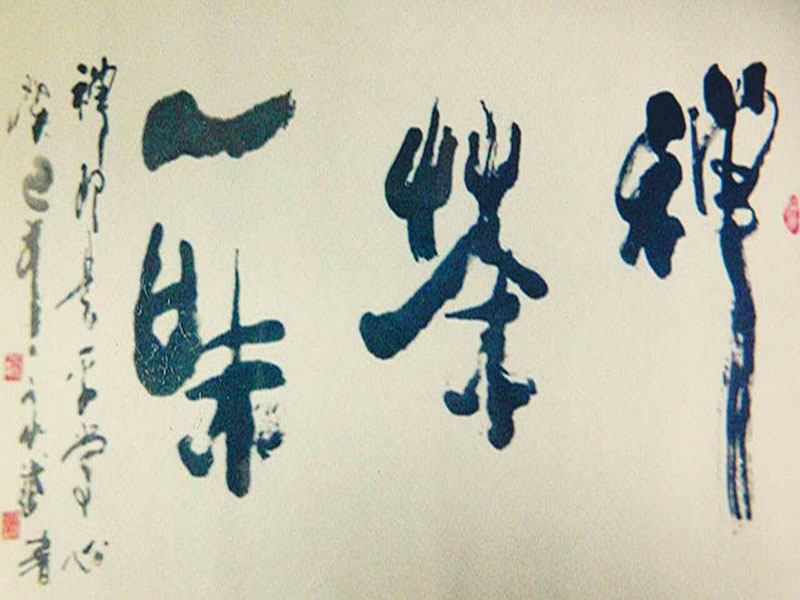 禅茶一味
禅即是平常心
癸巳年
书